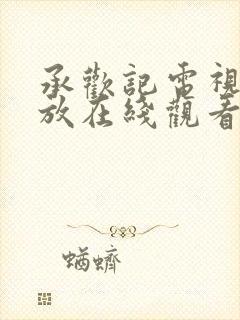 承歡記電視
放在綫觀看
蝤蠐